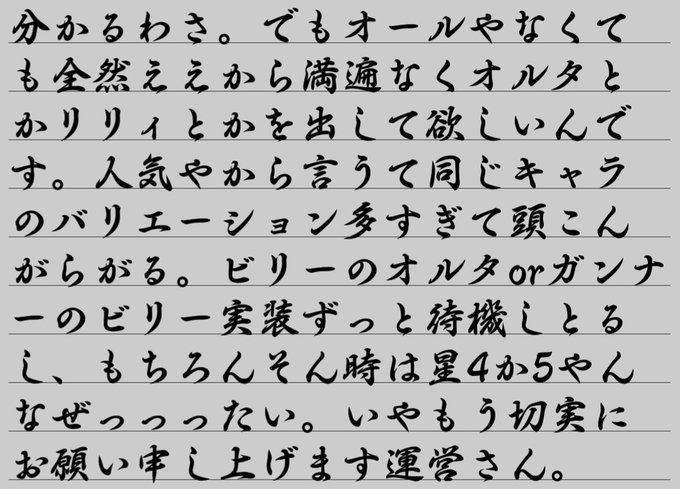 分かるわさ。でもオールやなくて
も全然ええから満遍なくオルタと
かリリィとかを出して欲しいんで
す。人気やから言うて同じキャラ
のバリエーション多すぎて頭こん
がらがる。ビリーのオルタorガンナ
ーのビリー実装ずっと待機しとる
し、もちろんそん時は星4か5やん
なぜっっったい。いやもう切実に
お願い申し上げます運営さん。